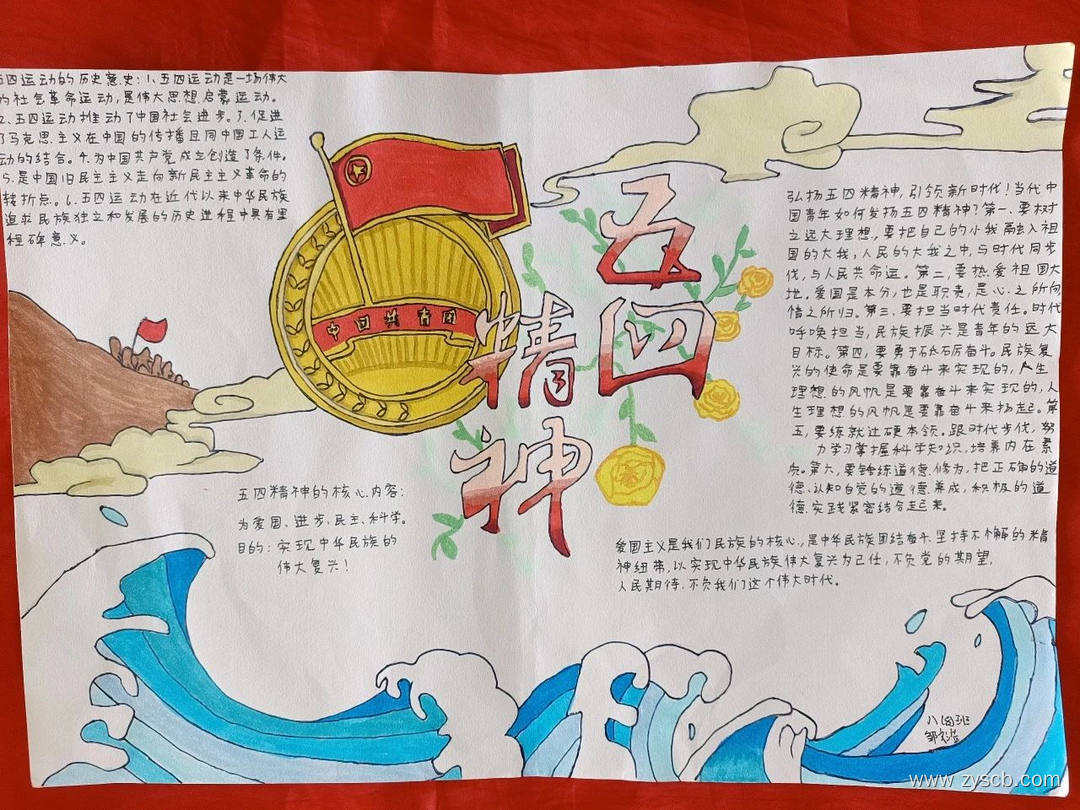 五四运动的历史意史:1、五四运动是一场伟大
为社会革命运动,是伟大思想启蒙运动。
2、五四运动推动了中国社会进步。3、促进
了马克思主义在中国的传播且同中国工人运
动的结合。4、为中国共产党成立创造了条件。
5、是中国旧民主主义走向新民主主义革命的
转折点。6、五四运动在近代以来中华民族
追求民族独立和发展的历史进程中具有里
程碑意义。
中国共青团
五四
精神
五四精神的核心内容:
为爱国、进步、民主、科学。
目的:实现中华民族的
伟大复兴!
弘扬五四精神,引领新时代!当代中
国青年如何发扬五四精神?第一、要树
立远大理想,要把自己的小我融入祖
国的大我,人民的大我之中,与时代同步
伐,与人民共命运。第二,要热爱祖国大
地。爱国是本分,也是职责,是心之所向
情之所归。第三、要担当时代责任。时代
呼唤担当,民族振兴是青年的远大
目标。第四,要勇于砥砺奋斗。民族复
兴的使命是要靠奋斗来实现的,人生
理想的风帆是要靠奋斗来实现的,人
生理想的风帆是要靠奋斗来扬起。第
五,要练就过硬本领。跟时代步伐,努
力学习掌握科学知识,培养内在素
质。第六,要锤练道德修为,把正确的道
德认知自觉的道德养成,积极的道
德实践紧密结合起来。
爱国主义是我们民族的核心,是中华民族团结奋斗、坚持不懈的精
神纽带,以实现中华民族伟大复兴为己任,不负党的期望,
人民期待,不负我们这个伟大时代。
八四班
www.zyscb.com